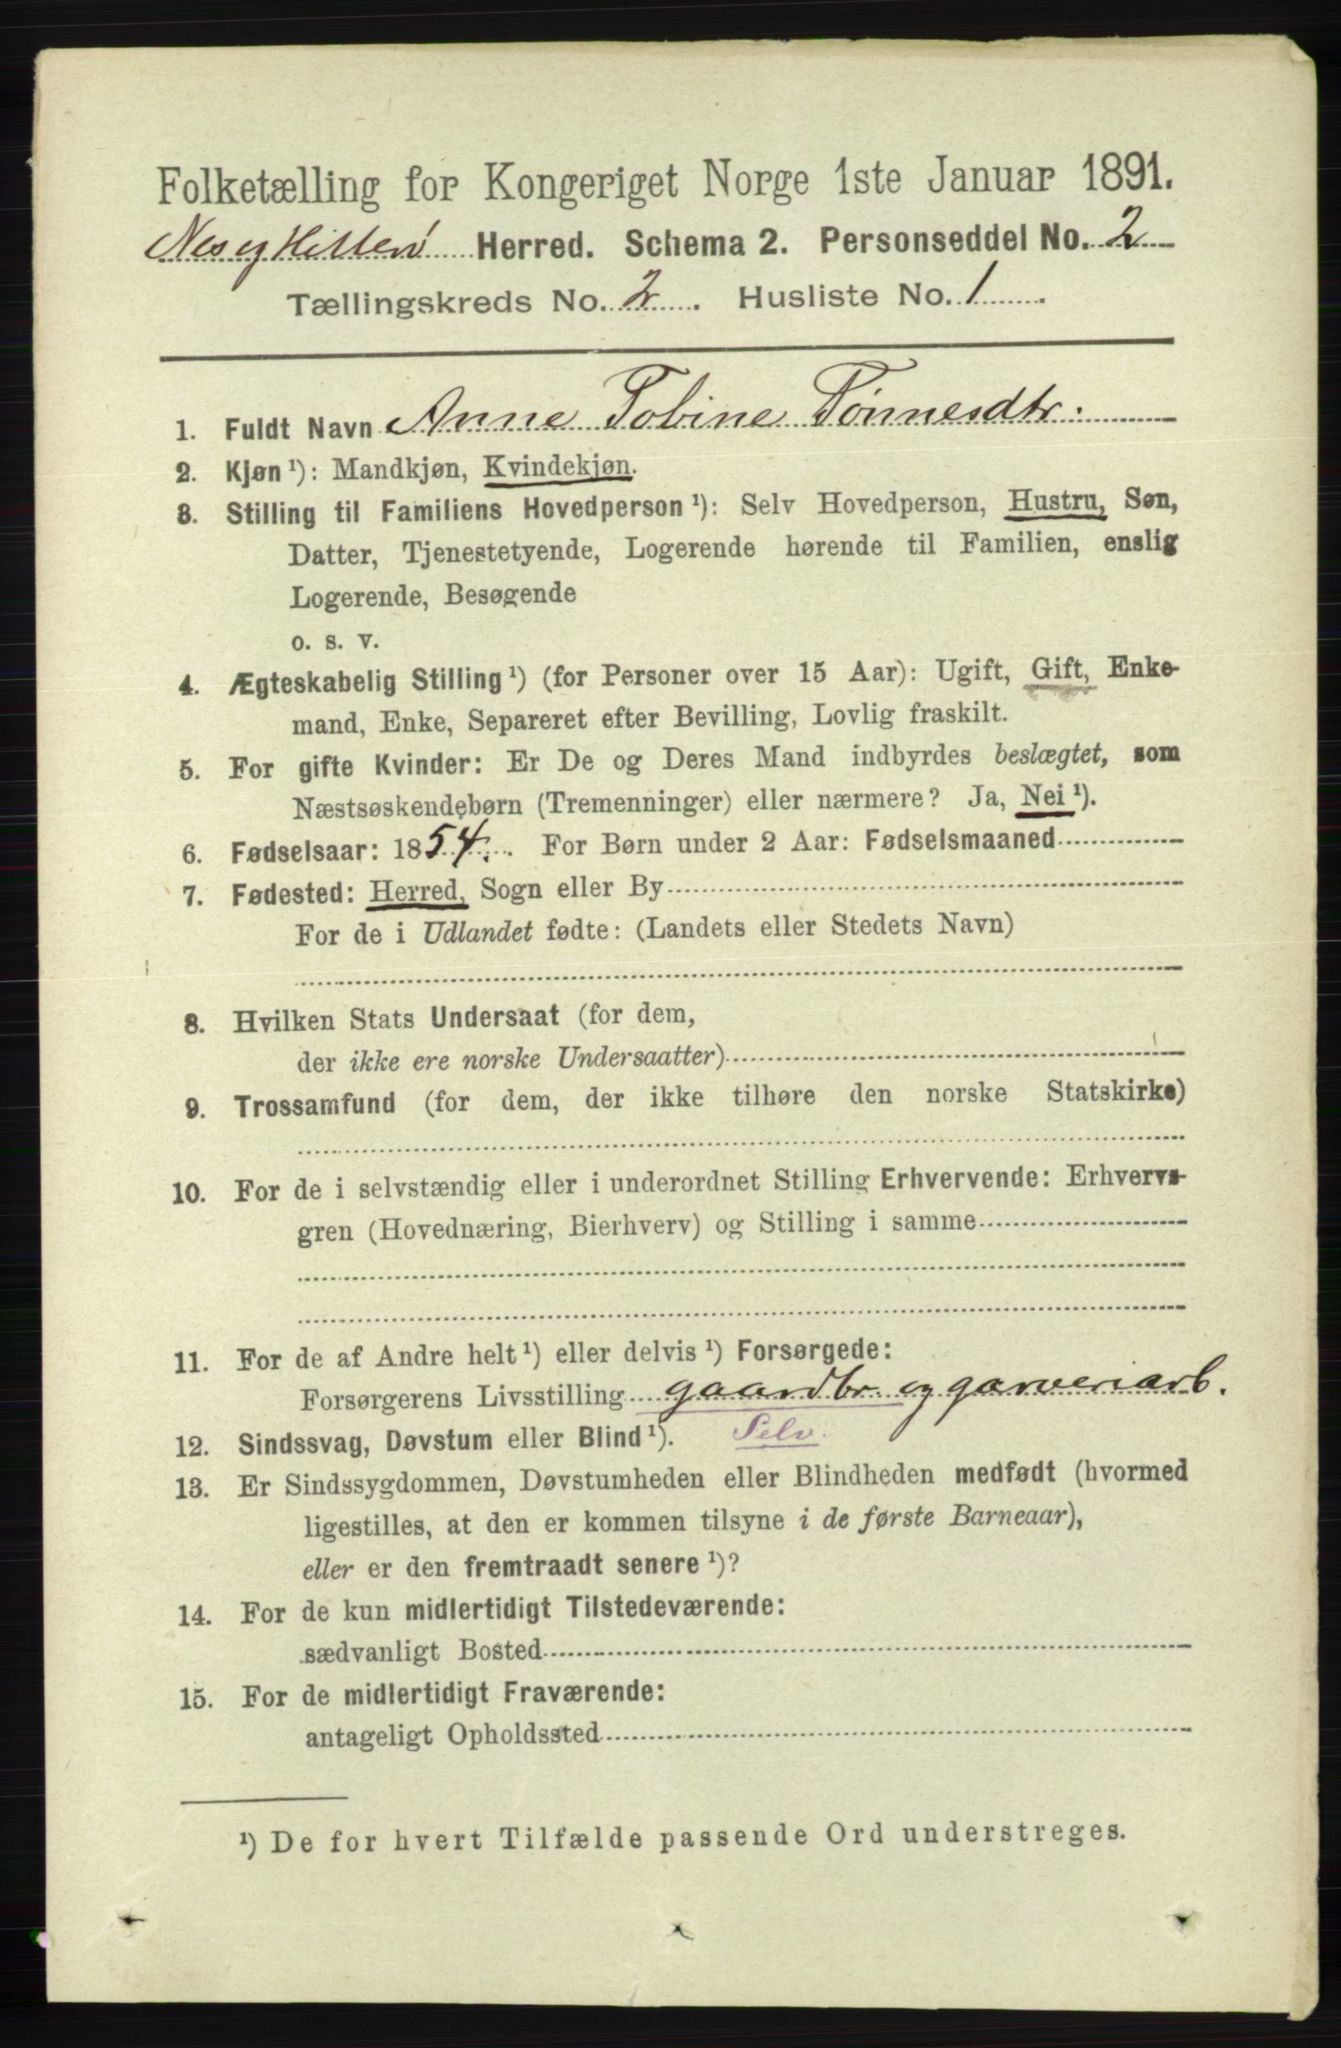 Folketælling for Kongeriget Norge 1ste Januar 1891.
Nes og Hitterø Herred. Schema 2. Personseddel No. 2
Tællingskreds No. 2. Husliste No. 1.
1. Fuldt Navn Anne Tobine Tønnesdtr.
2. Kjøn ¹): Mandkjøn, Kvindekjøn.
3. Stilling til Familiens Hovedperson ¹): Selv Hovedperson, Hustru, Søn,
Datter, Tjenestetyende, Logerende hørende til Familien, enslig
Logerende, Besøgende
o. s. v.
4. Ægteskabelig Stilling ¹) (for Personer over 15 Aar): Ugift, Gift, Enke-
mand, Enke, Separeret efter Bevilling, Lovlig fraskilt.
5. For gifte Kvinder: Er De og Deres Mand indbyrdes beslægtet, som
Næstsøskendebørn (Tremenninger) eller nærmere? Ja, Nei ¹).
6. Fødselsaar: 1854. For Børn under 2 Aar: Fødselsmaaned
7. Fødested: Herred, Sogn eller By
For de i Udlandet fødte: (Landets eller Stedets Navn)
8. Hvilken Stats Undersaat (for dem,
der ikke ere norske Undersaatter)
9. Trossamfund (for dem, der ikke tilhøre den norske Statskirke)
10. For de i selvstændig eller i underordnet Stilling Erhvervende: Erhvervs-
gren (Hovednæring, Bierhverv) og Stilling i samme
11. For de af Andre helt ¹) eller delvis ¹) Forsørgede:
Forsørgerens Livsstilling gaardbr. og garveriarb.
12. Sindssvag, Døvstum eller Blind ¹). Selv.
13. Er Sindssygdommen, Døvstumheden eller Blindheden medfødt (hvormed
ligestilles, at den er kommen tilsyne i de første Barneaar),
eller er den fremtraadt senere ¹)?
14. For de kun midlertidigt Tilstedeværende:
sædvanligt Bosted
15. For de midlertidigt Fraværende:
antageligt Opholdssted
¹) De for hvert Tilfælde passende Ord understreges.